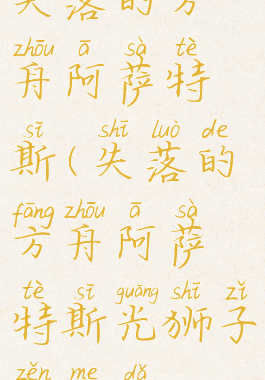 失落的方
zhōu ā sà tè
舟阿萨特
sī shī luò de
斯(失落的
fāng zhōu ā sà
方舟阿萨
tè sī guāng shī zǐ
特斯光狮子
zěn me dǎ